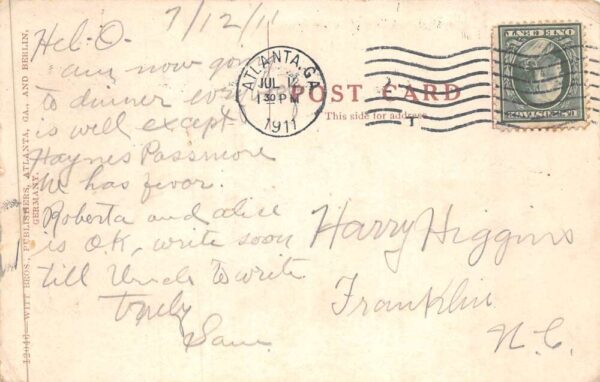 7/12/11
Hel-O-
am now going
to dinner
is well except
Haynes Passmore
he has fever.
Roberta and alice
is O.K. write soon
till Uncle to write
truly
Sam
ATLANTA, GA.
JUL 12
1 30 PM
1911
POST CARD
This side for address.
Harry Higgins
Franklin
N.C.
WITT BROS., PUBLISHERS, ATLANTA, GA., AND BERLIN,
GERMANY.